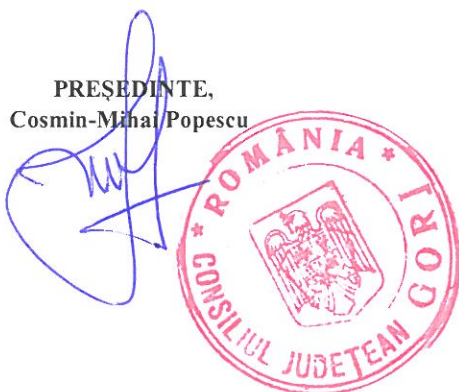 PREȘEDINTE,
Cosmin-Mihai Popescu
* ROMÂNIA *
CONSILIUL JUDEȚEAN GORJ